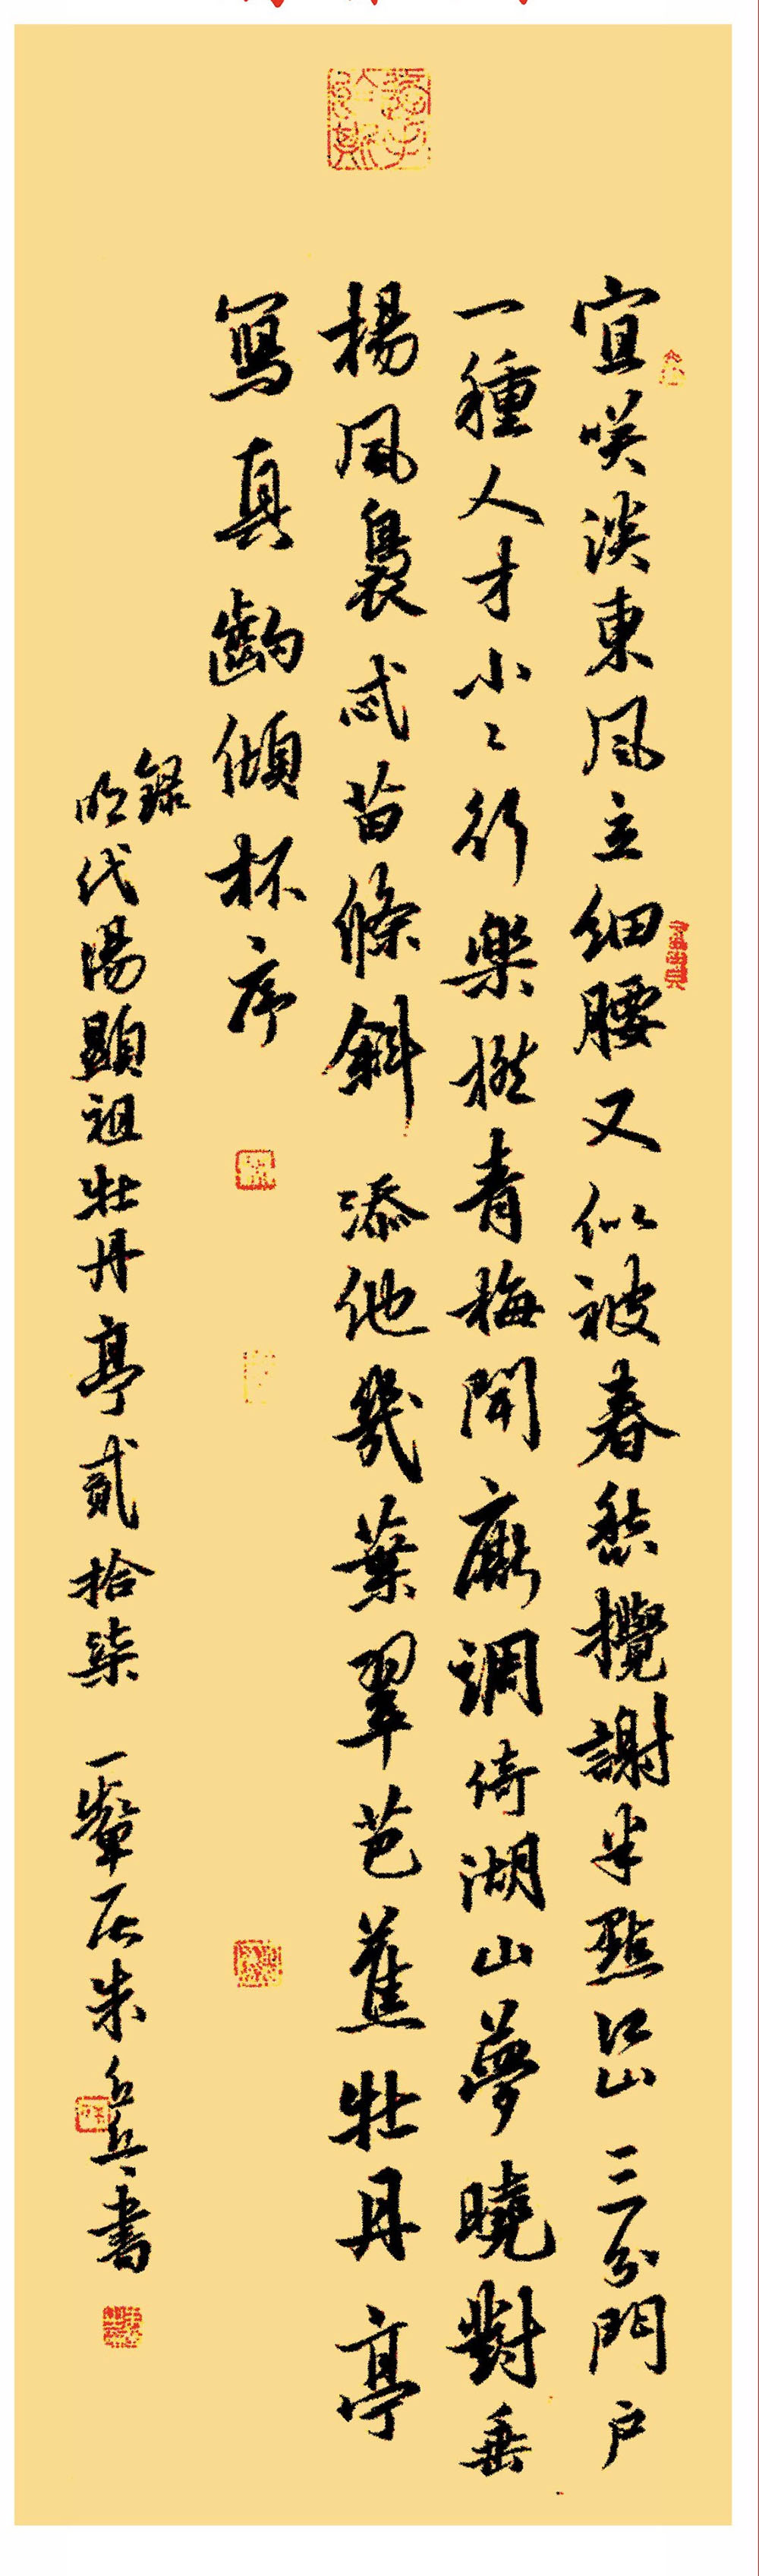 宜咲淡東風立細腰又似被春愁攪謝半點江山三分門户
一種人才小々行樂撚青梅閒廝調倚湖山夢曉對垂
楊風裊忒苗條斜添他幾葉翠芭蕉牡丹亭
寫真齣傾杯序
錄
明代湯顯祖牡丹亭貳拾柒 一朱兵書